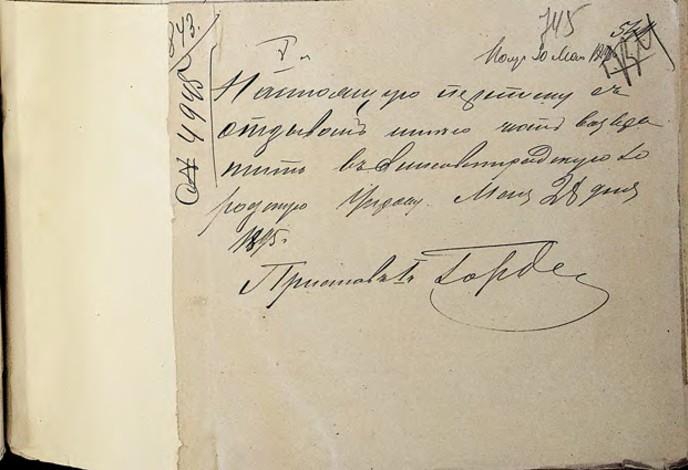 745
№ 4945
843.
Пол. 30 Мая 189
Настоящую переписку съ
отзывомъ имѣю честь возвра
тить въ Елисаветградскую Го
родскую Управу. Мая 28 дня
1895 г.
Приставъ